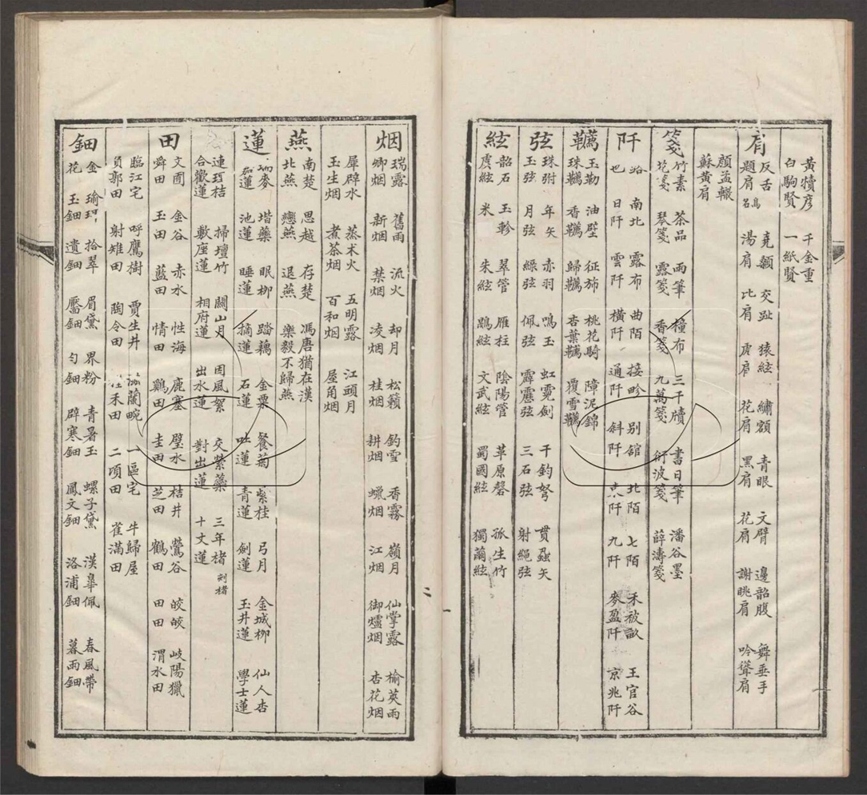 黃犢彥 千金重
白駒賢 一紙賢
肩
反舌烏 堯顙 交趾 猿絃 繡額 青眼 文臂 邊韶腹 舞垂手
題肩名 湯肩 比肩 虎肩 花肩 黑肩 花肩 謝朓肩 吟聳肩
顏孟轍
蘇黃肩
箋
竹素 茶品 雨筆 橦布 三千牘 書日筆 潘谷墨
琴箋 露箋 香箋 九萬箋 衍波箋 薛濤箋
阡
路 南北 露布 曲陌 接畛 別館 北陌 七陌 禾被畝 王官谷
也 日阡 雲阡 橫阡 通阡 斜阡 阡 九阡 麥盈阡 京兆阡
韉
玉勒 油壁 征旆 桃花騎 障泥錦
珠韉 香韉 歸韉 杏葉韉 覆雪韉
弦
珠弣 年矢 赤羽 鳴玉 虹霓劍 千鈞弩 貫蝨矢
玉弦 月弦 綠弦 佩弦 霹靂弦 三石弦 射繩弦
絃
韶石 玉軫 翠管 雁柱 陰陽管 草原磬 孤生竹
虞絃 米 朱絃 鵾絃 文武絃 蜀國絃 獨繭絃
烟
瑞露 舊雨 流火 却月 松籟 釣雪 香霧 嶺月 仙掌露 榆莢雨
卿烟 新烟 禁烟 凌烟 桂烟 耕烟 蠟烟 江烟 御爐烟 杏花烟
犀辟水 蒸术火 五明露 江頭月
玉生烟 煮茶烟 百和烟 屋角烟
燕
南楚 思越 存楚 馮唐猶在漢
北燕 戀燕 退燕 樂毅不歸燕
蓮
麥 堦藥 眼柳 踏藕 金粟 餐菊 紫桂 弓月 金城柳 仙人杏
蓮 池蓮 睡蓮 摘蓮 石蓮 吐蓮 青蓮 劍蓮 玉井蓮 學士蓮
連瑣桔 掃壇竹 關山月 因風絮 交紫藥 三年楮刻楮
合歡蓮 軟座蓮 相府蓮 出水蓮 對出蓮 十丈蓮
田
文囿 金谷 赤水 性海 鹿塞 璧水 桔井 鶯谷 皎皎 岐陽獵
舜田 玉田 藍田 情田 鷄田 圭田 芝田 鶴田 田田 渭水田
臨江宅 呼鷹樹 賈生井 蘭畹 一區宅 牛歸屋
負郭田 射雉田 陶令田 禾田 二頃田 雀滿田
鈿
金 瑜珥 拾翠 眉黛 界粉 青暑玉 螺子黛 漢臯佩 春風帶
花 玉鈿 遺鈿 靨鈿 勻鈿 辟寒鈿 鳳文鈿 洛浦鈿 暮雨鈿